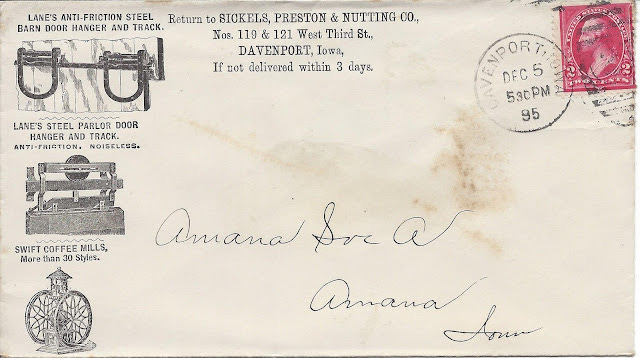 LANE'S ANTI-FRICTION STEEL
BARN DOOR HANGER AND TRACK.
LANE'S STEEL PARLOR DOOR
HANGER AND TRACK.
ANTI-FRICTION. NOISELESS.
SWIFT COFFEE MILLS,
More than 30 Styles.
Return to SICKELS, PRESTON & NUTTING CO.,
Nos. 119 & 121 West Third St.,
DAVENPORT, Iowa,
If not delivered within 3 days.
DAVENPORT, IOWA
DEC 5
530PM
95
Amana Soc A
Amana
Iowa